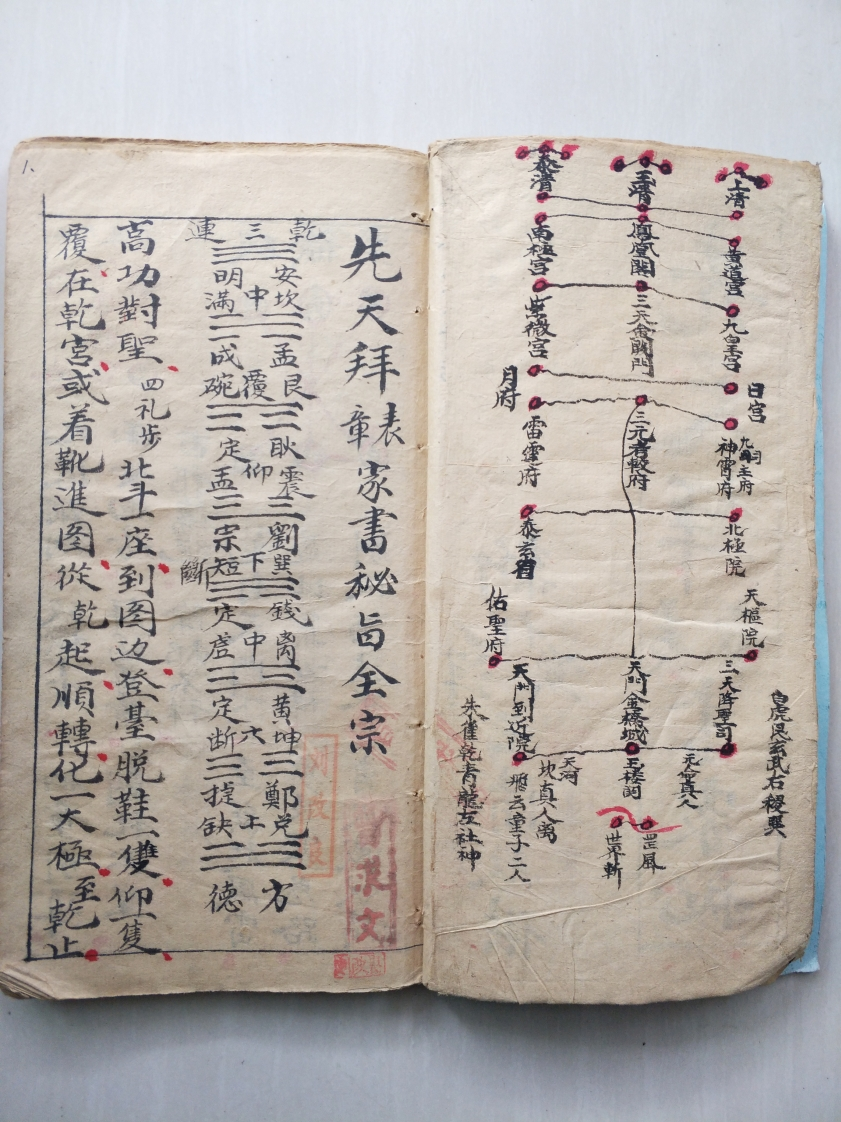 上清
黃道宮
九皇宮
日宮
神霄府
北極院
天樞院
三天降聖司
白虎艮玄武右稷巽
玉清
鳳凰閣
三天金闕門
三元考較府
天門金橋城
玉樓
元命真人
罡風
世界斬
泰清
南極宮
紫微宮
月府
雷霆府
泰玄省
佑聖府
天門到近院
天河
坎真人离
飛云童子二人
朱雀乾青龍左社神
先天拜表章家書秘旨全宗
乾 安坎 孟艮 耿震 劉巽 錢离 黄坤 鄭兑 方
三 中 覆 仰 下 中 六 上
連 明滿 成碗 定盂 宗短 斷 定虛 定断 提缺 德
高功對聖四礼步北斗一座到图边登臺脱鞋一隻仰一隻
覆在乾宫或着靴進图從乾起順轉化一大極至乾止
1.